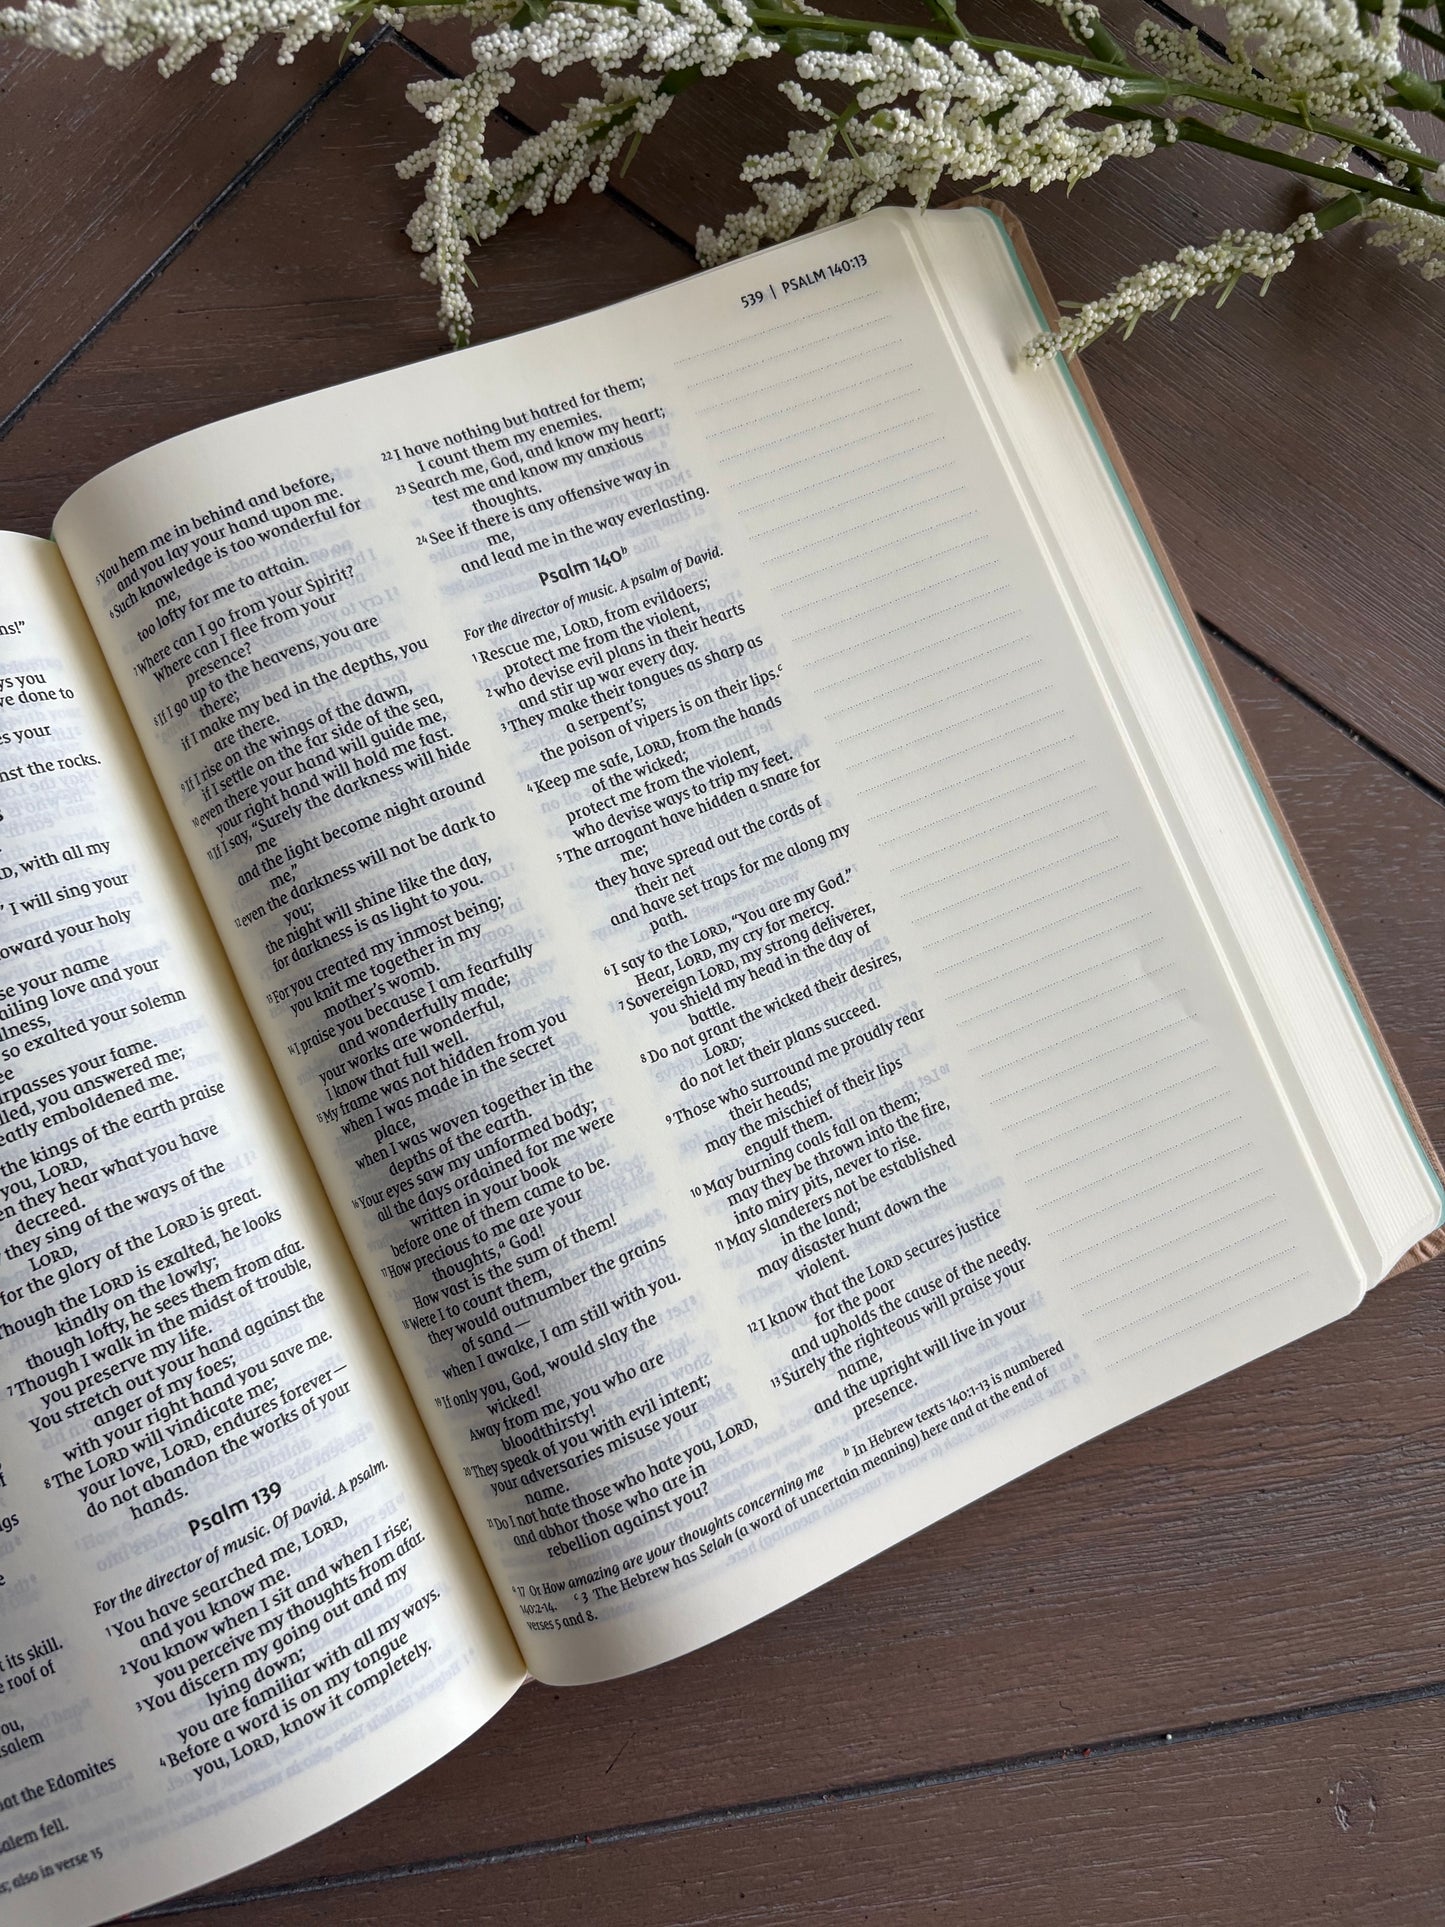 ns!"
ys you
ve done to
es your
nst the rocks.
RD, with all my
" I will sing your
oward your holy
se your name
ailing love and your
lness,
so exalted your solemn
ee
urpasses your fame.
lled, you answered me;
eatly emboldened me.
the kings of the earth praise
you, LORD,
en they hear what you have
decreed.
they sing of the ways of the
LORD,
for the glory of the LORD is great.
Though the LORD is exalted, he looks
kindly on the lowly;
though lofty, he sees them from afar.
7 Though I walk in the midst of trouble,
you preserve my life.
You stretch out your hand against the
anger of my foes;
with your right hand you save me.
8 The LORD will vindicate me;
your love, LORD, endures forever—
do not abandon the works of your
hands.
Psalm 139
For the director of music. Of David. A psalm.
1 You have searched me, LORD,
and you know me.
2 You know when I sit and when I rise;
you perceive my thoughts from afar.
3 You discern my going out and my
lying down;
you are familiar with all my ways.
4 Before a word is on my tongue
you, LORD, know it completely.
t its skill.
e roof of
ou,
salem
hat the Edomites
salem fell.
s; also in verse 15
539 | PSALM 140:13
5 You hem me in behind and before,
and you lay your hand upon me.
6 Such knowledge is too wonderful for
me,
too lofty for me to attain.
7 Where can I go from your Spirit?
Where can I flee from your
presence?
8 If I go up to the heavens, you are
there;
if I make my bed in the depths, you
are there.
9 If I rise on the wings of the dawn,
if I settle on the far side of the sea,
10 even there your hand will guide me,
your right hand will hold me fast.
11 If I say, "Surely the darkness will hide
me
and the light become night around
me,"
12 even the darkness will not be dark to
you;
the night will shine like the day,
for darkness is as light to you.
13 For you created my inmost being;
you knit me together in my
mother's womb.
14 I praise you because I am fearfully
and wonderfully made;
your works are wonderful,
I know that full well.
15 My frame was not hidden from you
when I was made in the secret
place,
when I was woven together in the
depths of the earth.
16 Your eyes saw my unformed body;
all the days ordained for me were
written in your book
before one of them came to be.
17 How precious to me are your
thoughts,a God!
How vast is the sum of them!
18 Were I to count them,
they would outnumber the grains
of sand—
when I awake, I am still with you.
19 If only you, God, would slay the
wicked!
Away from me, you who are
bloodthirsty!
20 They speak of you with evil intent;
your adversaries misuse your
name.
21 Do I not hate those who hate you, LORD,
and abhor those who are in
rebellion against you?
22 I have nothing but hatred for them;
I count them my enemies.
23 Search me, God, and know my heart;
test me and know my anxious
thoughts.
24 See if there is any offensive way in
me,
and lead me in the way everlasting.
Psalm 140b
For the director of music. A psalm of David.
1 Rescue me, LORD, from evildoers;
protect me from the violent,
2 who devise evil plans in their hearts
and stir up war every day.
3 They make their tongues as sharp as
a serpent's;
the poison of vipers is on their lips.c
4 Keep me safe, LORD, from the hands
of the wicked;
protect me from the violent,
who devise ways to trip my feet.
5 The arrogant have hidden a snare for
me;
they have spread out the cords of
their net
and have set traps for me along my
path.
6 I say to the LORD, "You are my God."
Hear, LORD, my cry for mercy.
7 Sovereign LORD, my strong deliverer,
you shield my head in the day of
battle.
8 Do not grant the wicked their desires,
LORD;
do not let their plans succeed.
9 Those who surround me proudly rear
their heads;
may the mischief of their lips
engulf them.
10 May burning coals fall on them;
may they be thrown into the fire,
into miry pits, never to rise.
11 May slanderers not be established
in the land;
may disaster hunt down the
violent.
12 I know that the LORD secures justice
for the poor
and upholds the cause of the needy.
13 Surely the righteous will praise your
name,
and the upright will live in your
presence.
a 17 Or How amazing are your thoughts concerning me b In Hebrew texts 140:1-13 is numbered
140:2-14. c 3 The Hebrew has Selah (a word of uncertain meaning) here and at the end of
verses 5 and 8.